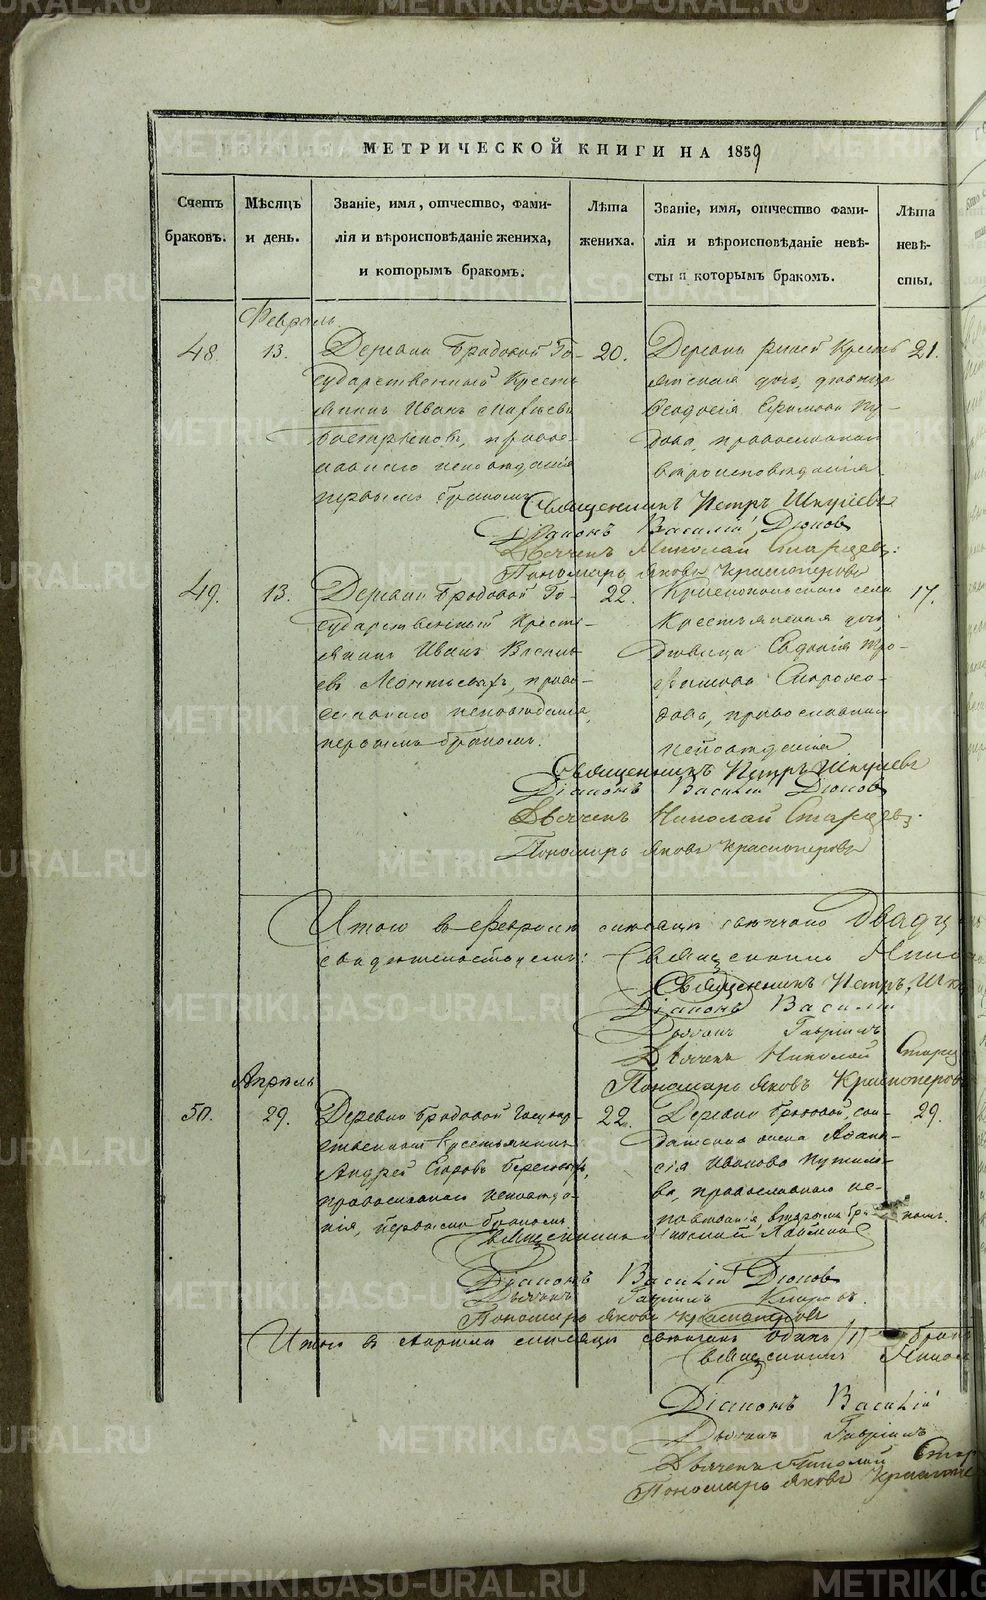 МЕТРИЧЕСКОЙ КНИГИ НА 1859
Счетъ браковъ.
Мѣсяцъ и день.
Званіе, имя, отчество, фами-
лія и вѣроисповѣданіе жениха,
и которымъ бракомъ.
Лѣта жениха.
Званіе, имя, отчество фами-
лія и вѣроисповѣданіе невѣ-
сты и которымъ бракомъ.
Лѣта невѣ-
сты.
Февраль
48.
13.
Деревни Бродовой Го-
сударственный Кресть
янинъ Иванъ
правос-
лавнаго исповѣданія
первымъ бракомъ
20.
Деревни Кресть
янская дочь, дѣвица
Ѳеодосія Ефимова
православнаго
вѣроисповѣданія
21.
Священникъ Петръ
Діаконъ Василій Дюков
Дьячекъ Николай Старцевъ.
Пономарь Яковъ Красноперовъ
49.
13.
Деревни Бродовой Го-
сударственный Кресть-
янинъ Иванъ Василь-
евъ право-
славнаго исповѣданія,
первымъ бракомъ.
22.
Краснопольскаго села
Крестьянская дочь
дѣвица Евдокія Тро-
фимова Скорохо-
дова, православнаго
исповѣданія
17.
Священникъ Петръ
Діаконъ Василій Дюков
Дьячекъ Николай Старцевъ.
Пономарь Яковъ Красноперовъ
Итого въ Февралѣ мѣсяцѣ вѣнчано Двадц
Священникъ
Священникъ Петръ
Діаконъ Василій
Дьячекъ Гавріилъ
Дьячекъ Николай Старц
Пономарь Яковъ Красноперов
Апрѣль
50.
29.
Деревни Бродовой Государ-
ственный Крестьянинъ
Андрей Егоровъ
православнаго исповѣда-
нія, первымъ бракомъ
22.
Деревни Бродовой, сол-
датская жена Аѳана-
сія Иванова Путило-
ва, православнаго ис-
повѣданія, вторымъ бракомъ.
29.
Священникъ
Діаконъ Василій Дюков
Дьячекъ Гавріилъ
Пономарь Яковъ Красноперовъ
Итого въ Апрѣлѣ мѣсяцѣ вѣнчанъ одинъ /1/ бракъ
Священникъ Никол
Діаконъ Василій
Дьячекъ Гавріилъ
Дьячекъ Николай Стар
Пономарь Яковъ
METRIKI.GASO-URAL.RU